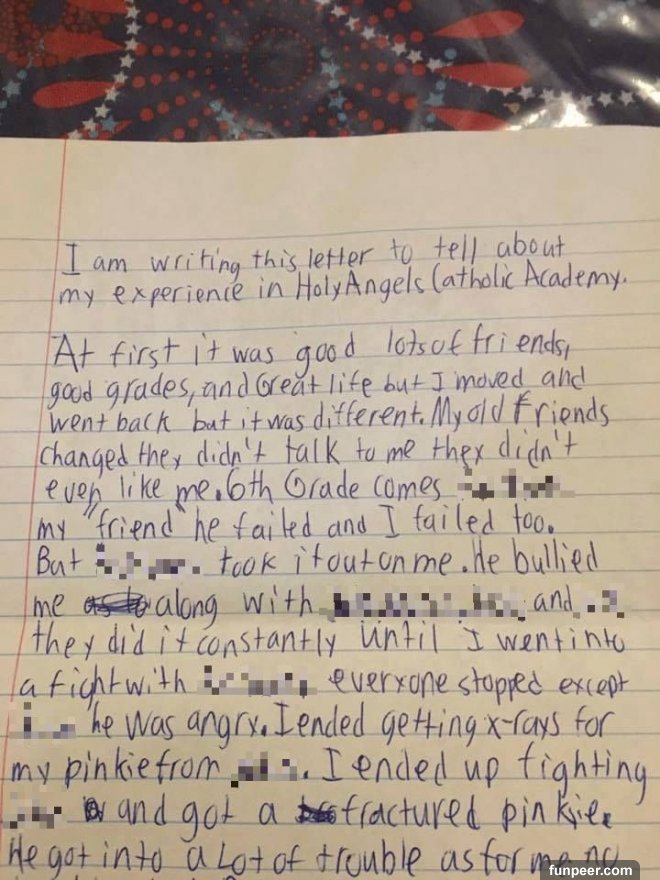 I am writing this letter to tell about
my experience in Holy Angels Catholic Academy.
At first it was good lots of friends,
good grades, and Great life but I moved and
went back but it was different. My old friends
changed they didn't talk to me they didn't
even like me. 6th Grade comes
my "friend" he failed and I failed too.
But took it out on me. He bullied
me along with and
they did it constantly until I went into
a fight with everyone stopped except
he was angry. I ended getting x-rays for
my pinkie from . I ended up fighting
and got a fractured pinkie.
He got into a Lot of trouble as for me no
funpeer.com